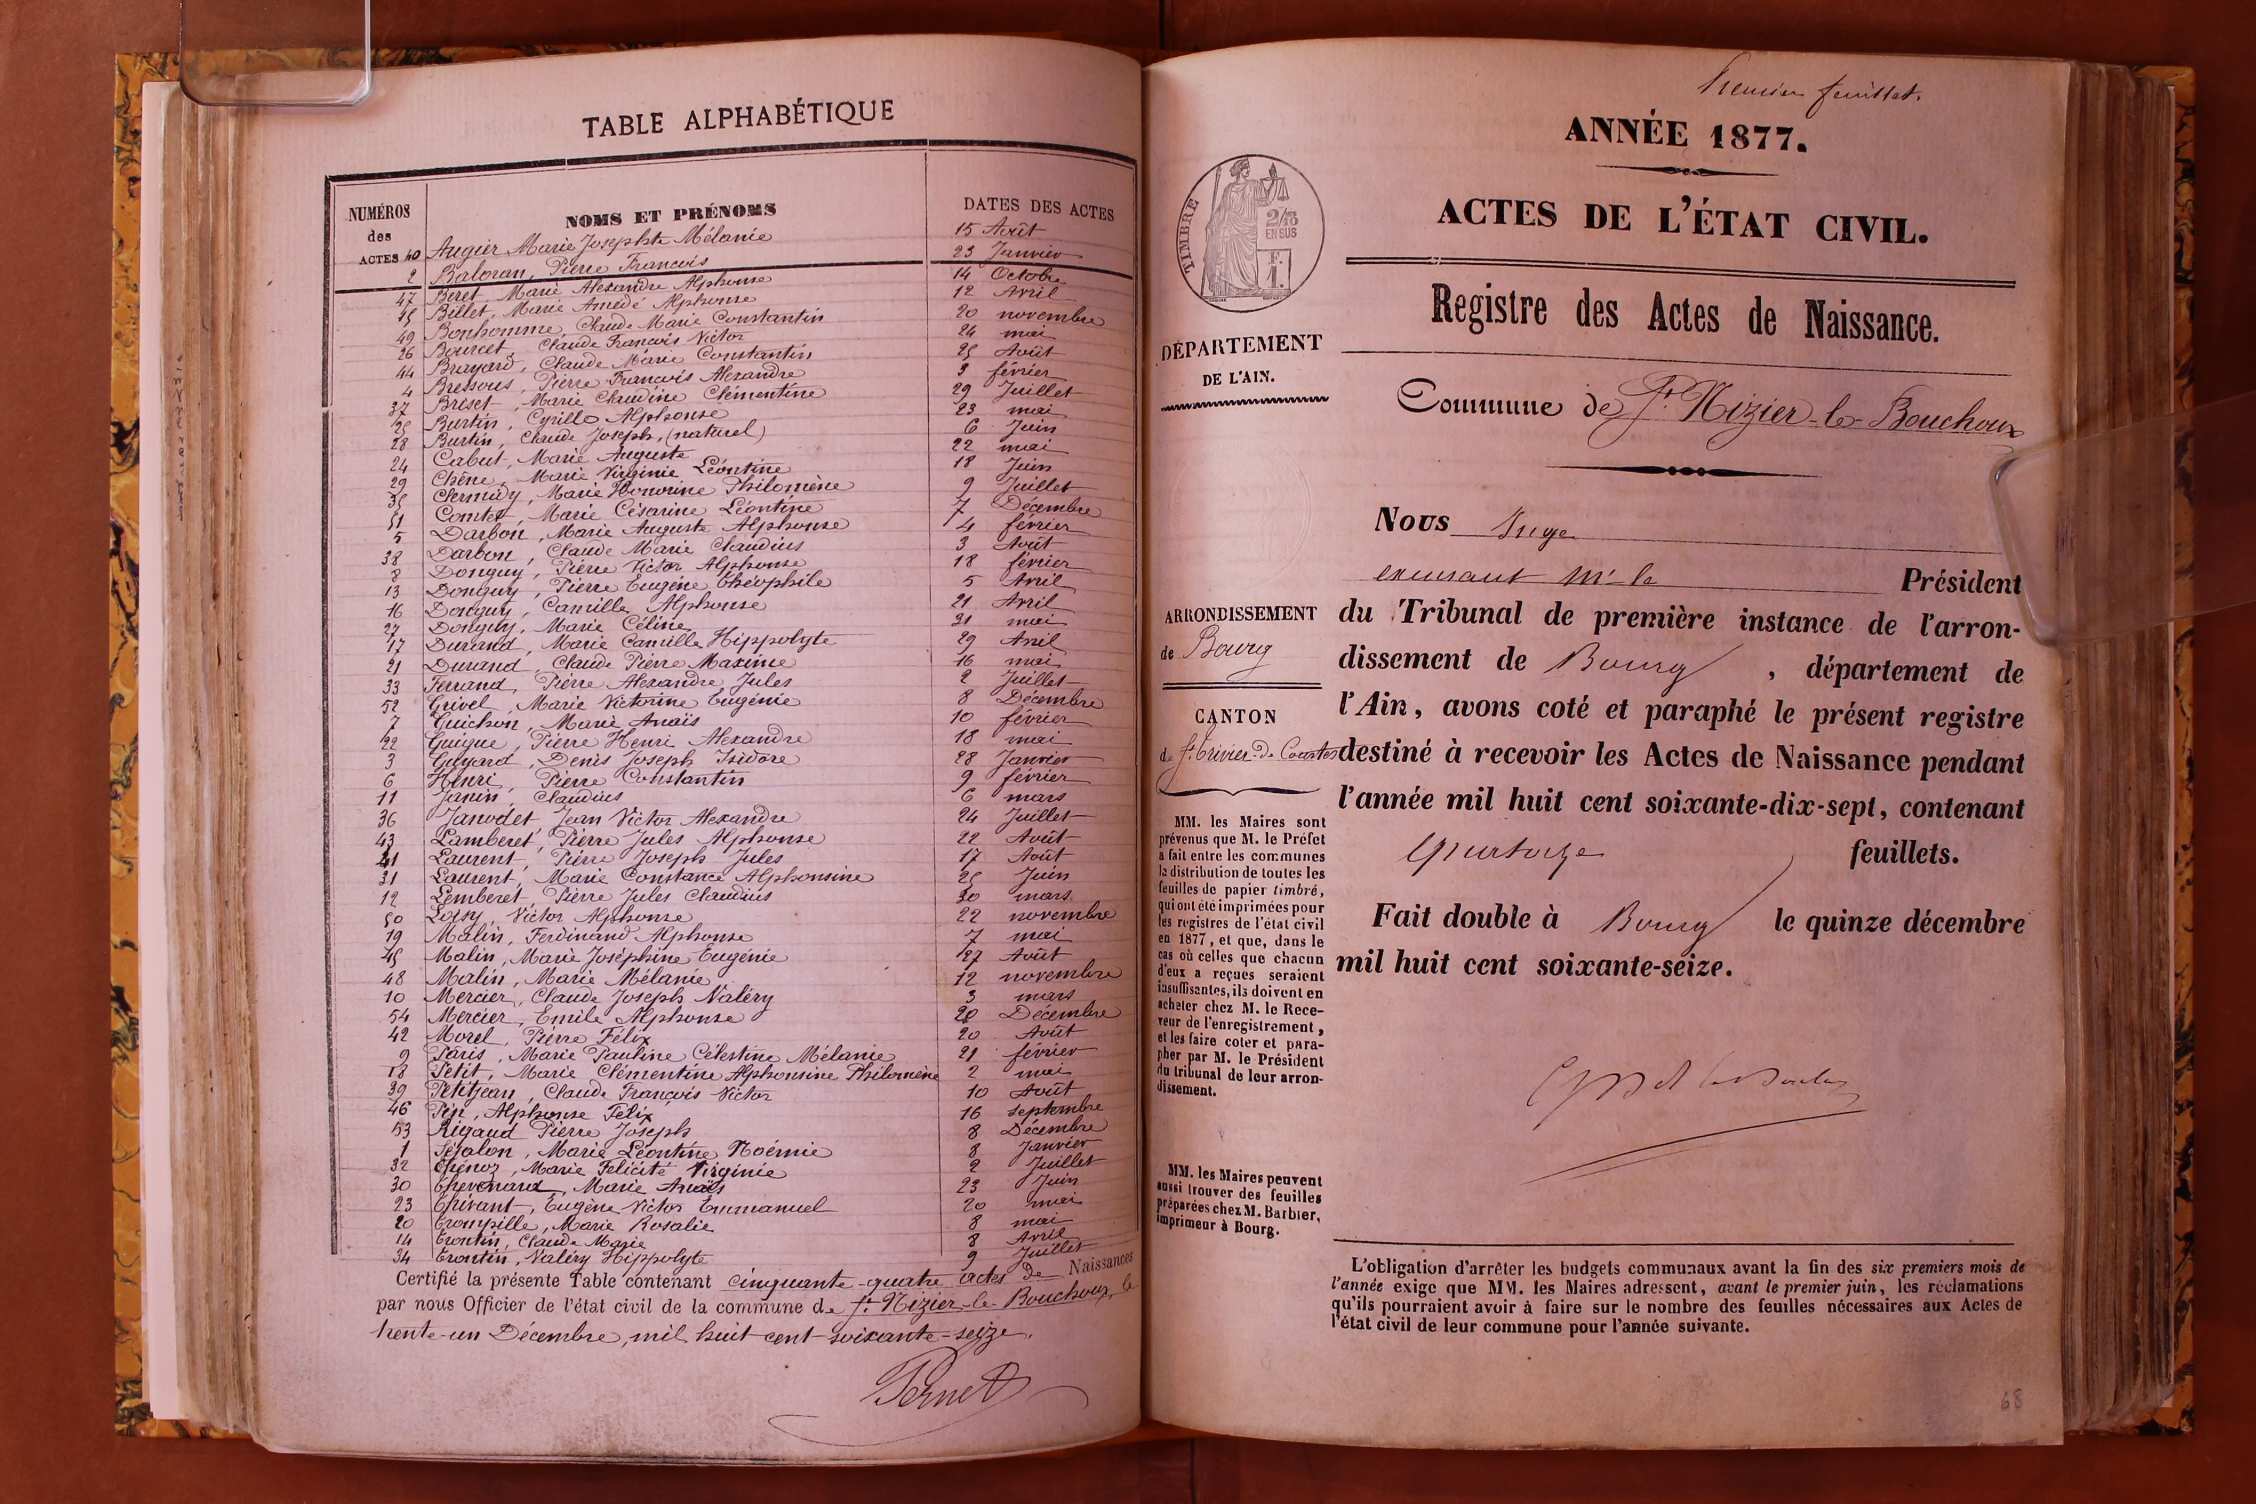 TABLE ALPHABÉTIQUE
NUMÉROS des ACTES NOMS ET PRÉNOMS DATES DES ACTES
40 Augier Marie Josephte Mélanie 15 Août
2 Baloran, Pierre François 23 Janvier
47 Beret Marie Alexandre Alphonse 14 Octobre
15 Billet, Marie Amédé Alphonse 12 Avril
49 Bonhomme, Claude Marie Constantin 20 novembre
26 Bourcet, Claude François Victor 24 mai
44 Brayard, Claude Marie Constantin 25 Août
4 Bressous, Pierre François Alexandre 3 février
37 Briset, Marie Claudine Clémentine 29 Juillet
25 Burtin, Cyrille Alphonse 23 mai
28 Burtin, Claude Joseph, (naturel) 6 Juin
24 Cabut, Marie Auguste 22 mai
29 Chêne, Marie Virginie Léontine 18 Juin
35 Clermidy, Marie Honorine Philomène 9 Juillet
51 Comtet, Marie Césarine Léontine 7 Décembre
5 Darbon, Marie Auguste Alphonse 4 février
38 Darbon, Claude Marie Claudius 3 Août
8 Donguy, Pierre Victor Alphonse 18 février
13 Donguy, Pierre Eugène Théophile 5 Avril
16 Donguy, Camille Alphonse 21 Avril
27 Donguy, Marie Céline 31 mai
17 Durand, Marie Camille Hippolyte 29 Avril
21 Durand, Claude Pierre Maxime 16 mai
33 Ferrand, Pierre Alexandre Jules 2 Juillet
52 Grivel, Marie Victorine Eugénie 8 Décembre
7 Guichon, Marie Anaïs 10 février
22 Guigue, Pierre Henri Alexandre 18 mai
3 Guyard, Denis Joseph Isidore 28 Janvier
6 Henri, Pierre Constantin 9 février
11 Janin, Claudius 6 mars
36 Janodet, Jean Victor Alexandre 24 Juillet
43 Lamberet, Pierre Jules Alphonse 22 Août
41 Laurent, Pierre Joseph Jules 17 Août
31 Laurent, Marie Constance Alphonsine 25 Juin
12 Lemberet, Pierre Jules Claudius 30 mars
50 Loisy, Victor Alphonse 22 novembre
19 Malin, Ferdinand Alphonse 7 mai
45 Malin, Marie Joséphine Eugénie 27 Août
48 Malin, Marie Mélanie 12 novembre
10 Mercier, Claude Joseph Valéry 3 mars
54 Mercier, Emile Alphonse 20 Décembre
42 Morel, Pierre Félix 20 Août
9 Paris, Marie Pauline Célestine Mélanie 21 février
18 Petit, Marie Clémentine Alphonsine Philomène 2 mai
39 Petitjean, Claude François Victor 10 Août
46 Pin, Alphonse Félix 16 septembre
53 Rigaud Pierre Joseph 8 Décembre
1 Marie Léontine Noémie 8 Janvier
32 Thénoz, Marie Félicité Virginie 2 Juillet
30 Thevenard, Marie Anaïs 23 Juin
23 Thivant, Eugène Victor Emmanuel 20 mai
20 Trompille, Marie Rosalie 8 mai
14 Trontin, Claude Marie 8 Avril
34 Trontin, Valéry Hippolyte 9 Juillet
Certifié la présente Table contenant cinquante-quatre actes de Naissances
par nous Officier de l'état civil de la commune de St Nizier-le-Bouchoux, le
trente-un Décembre, mil huit cent soixante-seize.
Pernet
Premier feuillet.
ANNÉE 1877.
ACTES DE L'ÉTAT CIVIL.
TIMBRE
2/10
EN SUS
F.
1.
Registre des Actes de Naissance.
DÉPARTEMENT
DE L'AIN.
Commune de St Nizier-le-Bouchoux
Nous Juge
Mr le Président
du Tribunal de première instance de l'arron-
dissement de Bourg, département de
l'Ain, avons coté et paraphé le présent registre
destiné à recevoir les Actes de Naissance pendant
l'année mil huit cent soixante-dix-sept, contenant
quatorze feuillets.
Fait double à Bourg le quinze décembre
mil huit cent soixante-seize.
ARRONDISSEMENT
de Bourg
CANTON
de St Trivier-de-Courtes
MM. les Maires sont
prévenus que M. le Préfet
a fait entre les communes
la distribution de toutes les
feuilles de papier timbré,
qui ont été imprimées pour
les registres de l'état civil
en 1877, et que, dans le
cas où celles que chacun
d'eux a reçues seraient
insuffisantes, ils doivent en
acheter chez M. le Rece-
veur de l'enregistrement,
et les faire coter et para-
pher par M. le Président
du tribunal de leur arron-
dissement.
MM. les Maires peuvent
aussi trouver des feuilles
préparées chez M. Barbier,
imprimeur à Bourg.
L'obligation d'arrêter les budgets communaux avant la fin des six premiers mois de
l'année exige que MM. les Maires adressent, avant le premier juin, les réclamations
qu'ils pourraient avoir à faire sur le nombre des feuilles nécessaires aux Actes de
l'état civil de leur commune pour l'année suivante.
68